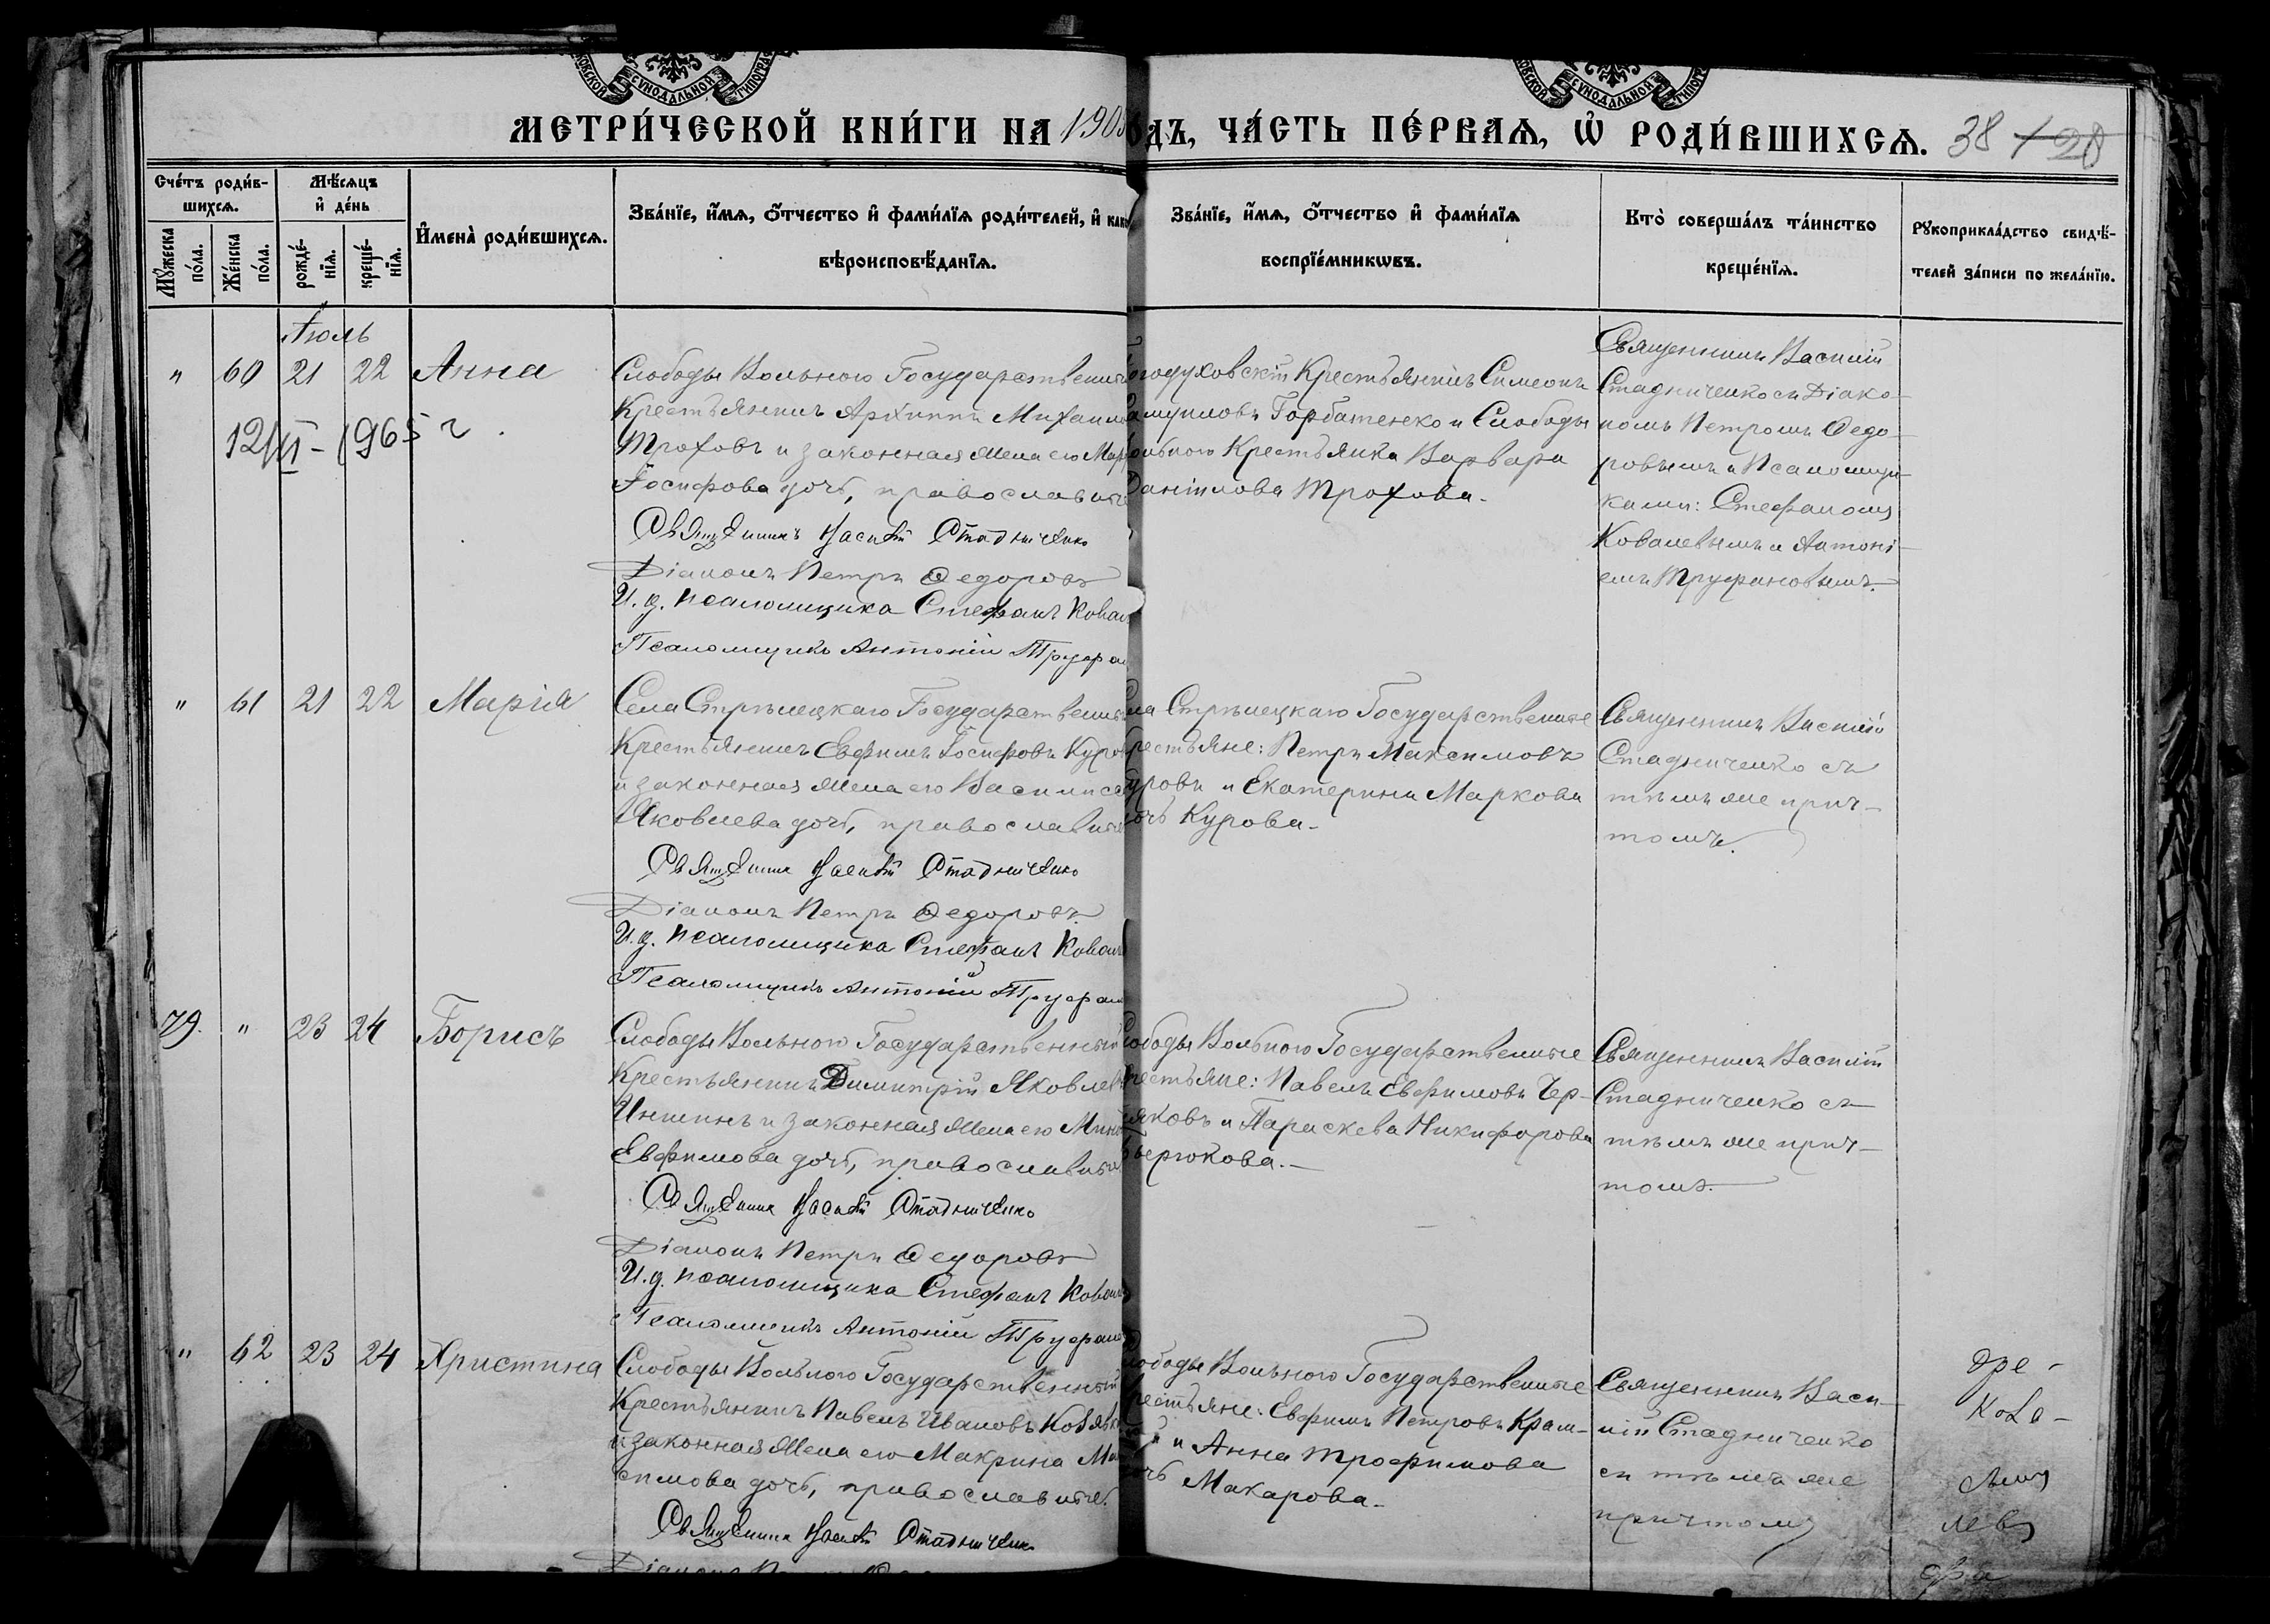 МОСКОВСКОЙ СУНОДАЛЬНОЙ ТИПОГРАФ
СУНОДАЛЬНОЙ ТИПОГР
МЕТРИ́ЧЕСКОЙ КНИ́ГИ НА 190
ДЪ, ЧА́СТЬ ПЕ́РВАѦ, Ѡ҆ РОДИ́ВШИХСѦ. 38
Сче́тъ роди́в-
шихсѧ.
Мꙋжеска по́ла.
Же́нска по́ла.
Мѣ́сѧцъ
и҆ де́нь
рожде́-
нїѧ.
креще́-
нїѧ.
И҆мена̀ роди́вшихсѧ.
Зва́нїе, и҆́мѧ, ѻ҆́тчество и҆ фами́лїѧ роди́телей, и҆ как
вѣроисповѣ́данїѧ.
Зва́нїе, и҆́мѧ, ѻ҆́тчество и҆ фами́лїѧ
воспрїе́мникѡвъ.
Кто̀ соверша́лъ та́инство
креще́нїѧ.
Рꙋкоприкла́дство свидѣ́-
телей за́писи по жела́нїю.
Іюль
" 60 21 22 Анна
12/VI - 1965 г.
Слободы Вольного Государственный
Крестьянинъ Архиппъ Михаило
Троховъ и законная жена его Мар
Іосифова дочь, православные
Священникъ Василій Стадниченко
Діаконъ Петръ Ѳедоровъ
И. д. псаломщика Стефанъ Ковал
Псаломщикъ Антоній Труфан
годуховскій Крестьянинъ Симеонъ
амуиловъ Горбатенко и Слободы
ольного Крестьянка Варвара
Даніилова Трохова.
Священникъ Василій
Стадниченко съ Діако-
номъ Петромъ Ѳедо-
ровымъ и Псаломщи-
ками: Стефаномъ
Ковалевымъ и Антоні-
емъ Труфановымъ.
" 61 21 22 Марія
Села Стрѣлецкаго Государственный
Крестьянинъ Евфимъ Іосифовъ Куров
и законная жена его Василиса
Яковлева дочь, православные
Священникъ Василій Стадниченко
Діаконъ Петръ Ѳедоровъ.
И. д. псаломщика Стефанъ Ковал
Псаломщикъ Антоній Труфан
ла Стрѣлецкаго Государственные
рестьяне: Петръ Максимовъ
уровъ и Екатерина Маркова
очь Курова.
Священникъ Василій
Стадниченко съ
тѣмъ же прич-
томъ.
79. " 23 24 Борисъ
Слободы Вольного Государственный
Крестьянинъ Димитрій Яковлев
и законная жена его
Евфимова дочь, православные
Священникъ Василій Стадниченко
Діаконъ Петръ Ѳедоровъ
И. д. псаломщика Стефанъ Ковал
Псаломщикъ Антоній Труфан
ободы Вольного Государственные
рестьяне: Павелъ Евфимовъ Чер-
няковъ и Параскева Никифорова
Бирюкова.
Священникъ Василій
Стадниченко съ
тѣмъ же прич-
томъ.
" 62 23 24 Христина
Слободы Вольного Государственный
Крестьянинъ Павелъ Ивановъ
и законная жена его Макрина Мак
симова дочь, православные.
Священникъ Василій Стадниченко
ободы Вольного Государственные
рестьяне: Евфимъ Петровъ Крам-
и Анна Трофимова
очь Макарова.
Священникъ Васи-
лій Стадниченко
съ тѣмъ же
причтомъ